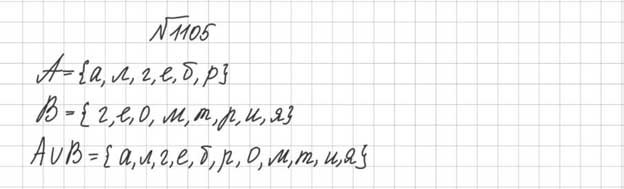 №1105
A={а, л, г, е, б, р}
B={г, е, о, м, т, р, и, я}
A∪B={а, л, г, е, б, р, о, м, т, и, я}